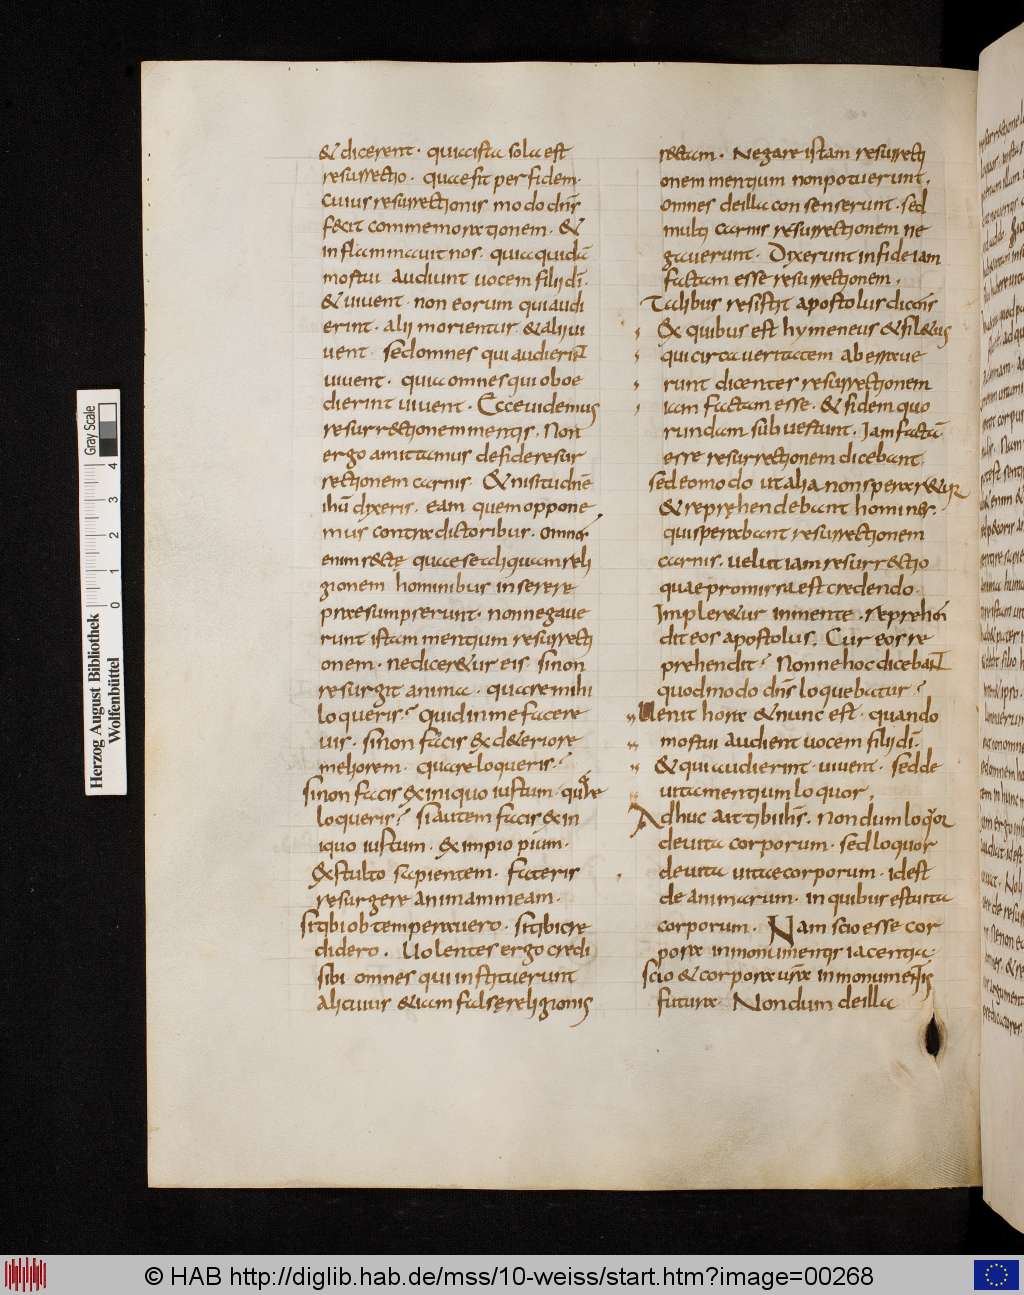 & dicerent · quia ista sola est
resurrectio · quae fit per fidem ·
cuius resurrectionis modo dn̄s
fecit commemorationem · &
inflammauit nos · quia quidā
mortui audiunt uocem filii dī ·
& uiuent · non eorum qui audi
erint · alii morientur & alii ui
uent · sed omnes qui audierint
uiuent · quia omnes qui oboe
dierint uiuent · Ecce uidemus
resurr&ctionem mentis · Non
ergo amittamus de fide resur
rectionem carnis · & nisi tu dn̄e
ihū dixeris · eam quem oppone
mus contradictoribus · omnes
enim rectę quae se aliquam reli
gionem hominibus inserere
praesumpserunt · non negaue
runt istam mentium resurrecti
onem · ne diceretur eis · si non
resurgit anima · quare mihi
loqueris? Quid in me facere
uis · si non facis ex d&eriore
meliorem · quare loqueris ?
si non facis ex iniquo iustum · quare
loqueris? si autem facis ex in
iquo iustum · Ex impio pium ·
Ex stulto sapientem · fateris
resurgere animam meam ·
si tibi obtemperauero · si tibi cre
didero · Uolentes ergo credi
sibi omnes qui instituerunt
alicuius &iam falsę religionis
r&ctam · Negare istam resurrecti
onem mentium non potuerunt ·
omnes de illa consenserunt · sed
multi carnis resurrectionem ne
gauerunt · Dixerunt in fide iam
factam esse resurrectionem ·
Talibus resistit apostolus dicens
Ex quibus est hymeneus & fil&us
qui circa ueritatem aberraue
runt dicentes resurrectionem
iam factam esse · & fidem quo
rundam subuertunt · Iam factā
esse resurrectionem dicebant ·
sed eo modo ut alia non speraretur
& reprehendebant homines ·
qui sperabant resurrectionem
carnis · uelut iam resurr&ctio
quae promissa est credendo ·
Impler&ur in mente · reprehen
dit eos apostolus · Cur eos re
prehendit? Nonne hoc dicebant
quod modo dn̄s loquebatur ?
Uenit hora & nunc est · quando
mortui audient uocem filii dī ·
& qui audierint · uiuent · sed de
uita mentium loquor ·
Adhuc ait tibi ihs̄ · Non dum loquor
de uita corporum · sed loquor
de uita uitae corporum · id est
de animarum · in quibus est uita
corporum · Nam scio esse cor
pora in monumentis iacentia ·
scio & corpora ur̄a in monumentis
futura · Non dum de illa
Gray Scale
4
3
2
1
0
Herzog August Bibliothek
Wolfenbüttel
© HAB http://diglib.hab.de/mss/10-weiss/start.htm?image=00268